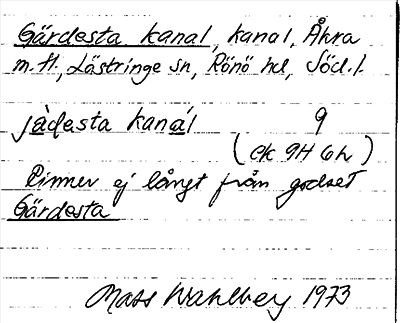 Gärdesta kanal, kanal, Åhra
m.fl., Lästringe sn, Rönö hd, Södl.
jàdesta kanál 9
(ek 9H 6h)
Rinner ej långt från godset
Gärdesta
Mats Wahlberg 1973